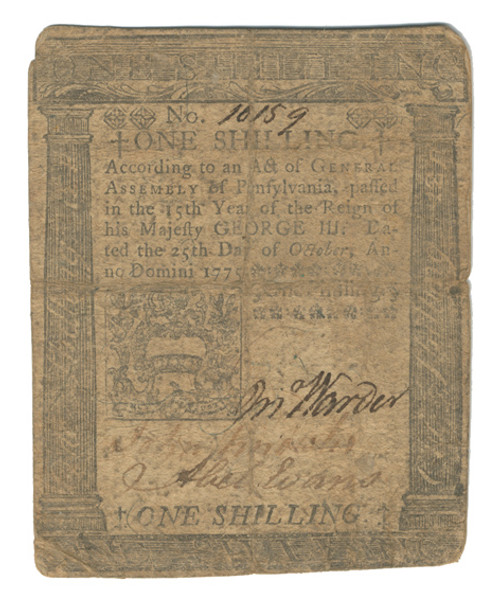 ONE SHILLING
No. 10159
ONE SHILLING.
According to an Act of GENERAL
ASSEMBLY of Pennsylvania, passed
in the 15th Year of the Reign of
his Majesty GEORGE III. Da-
ted the 25th Day of October, An-
no Domini 1775
One Shilling
Jno Warder
Abel Evans
ONE SHILLING.